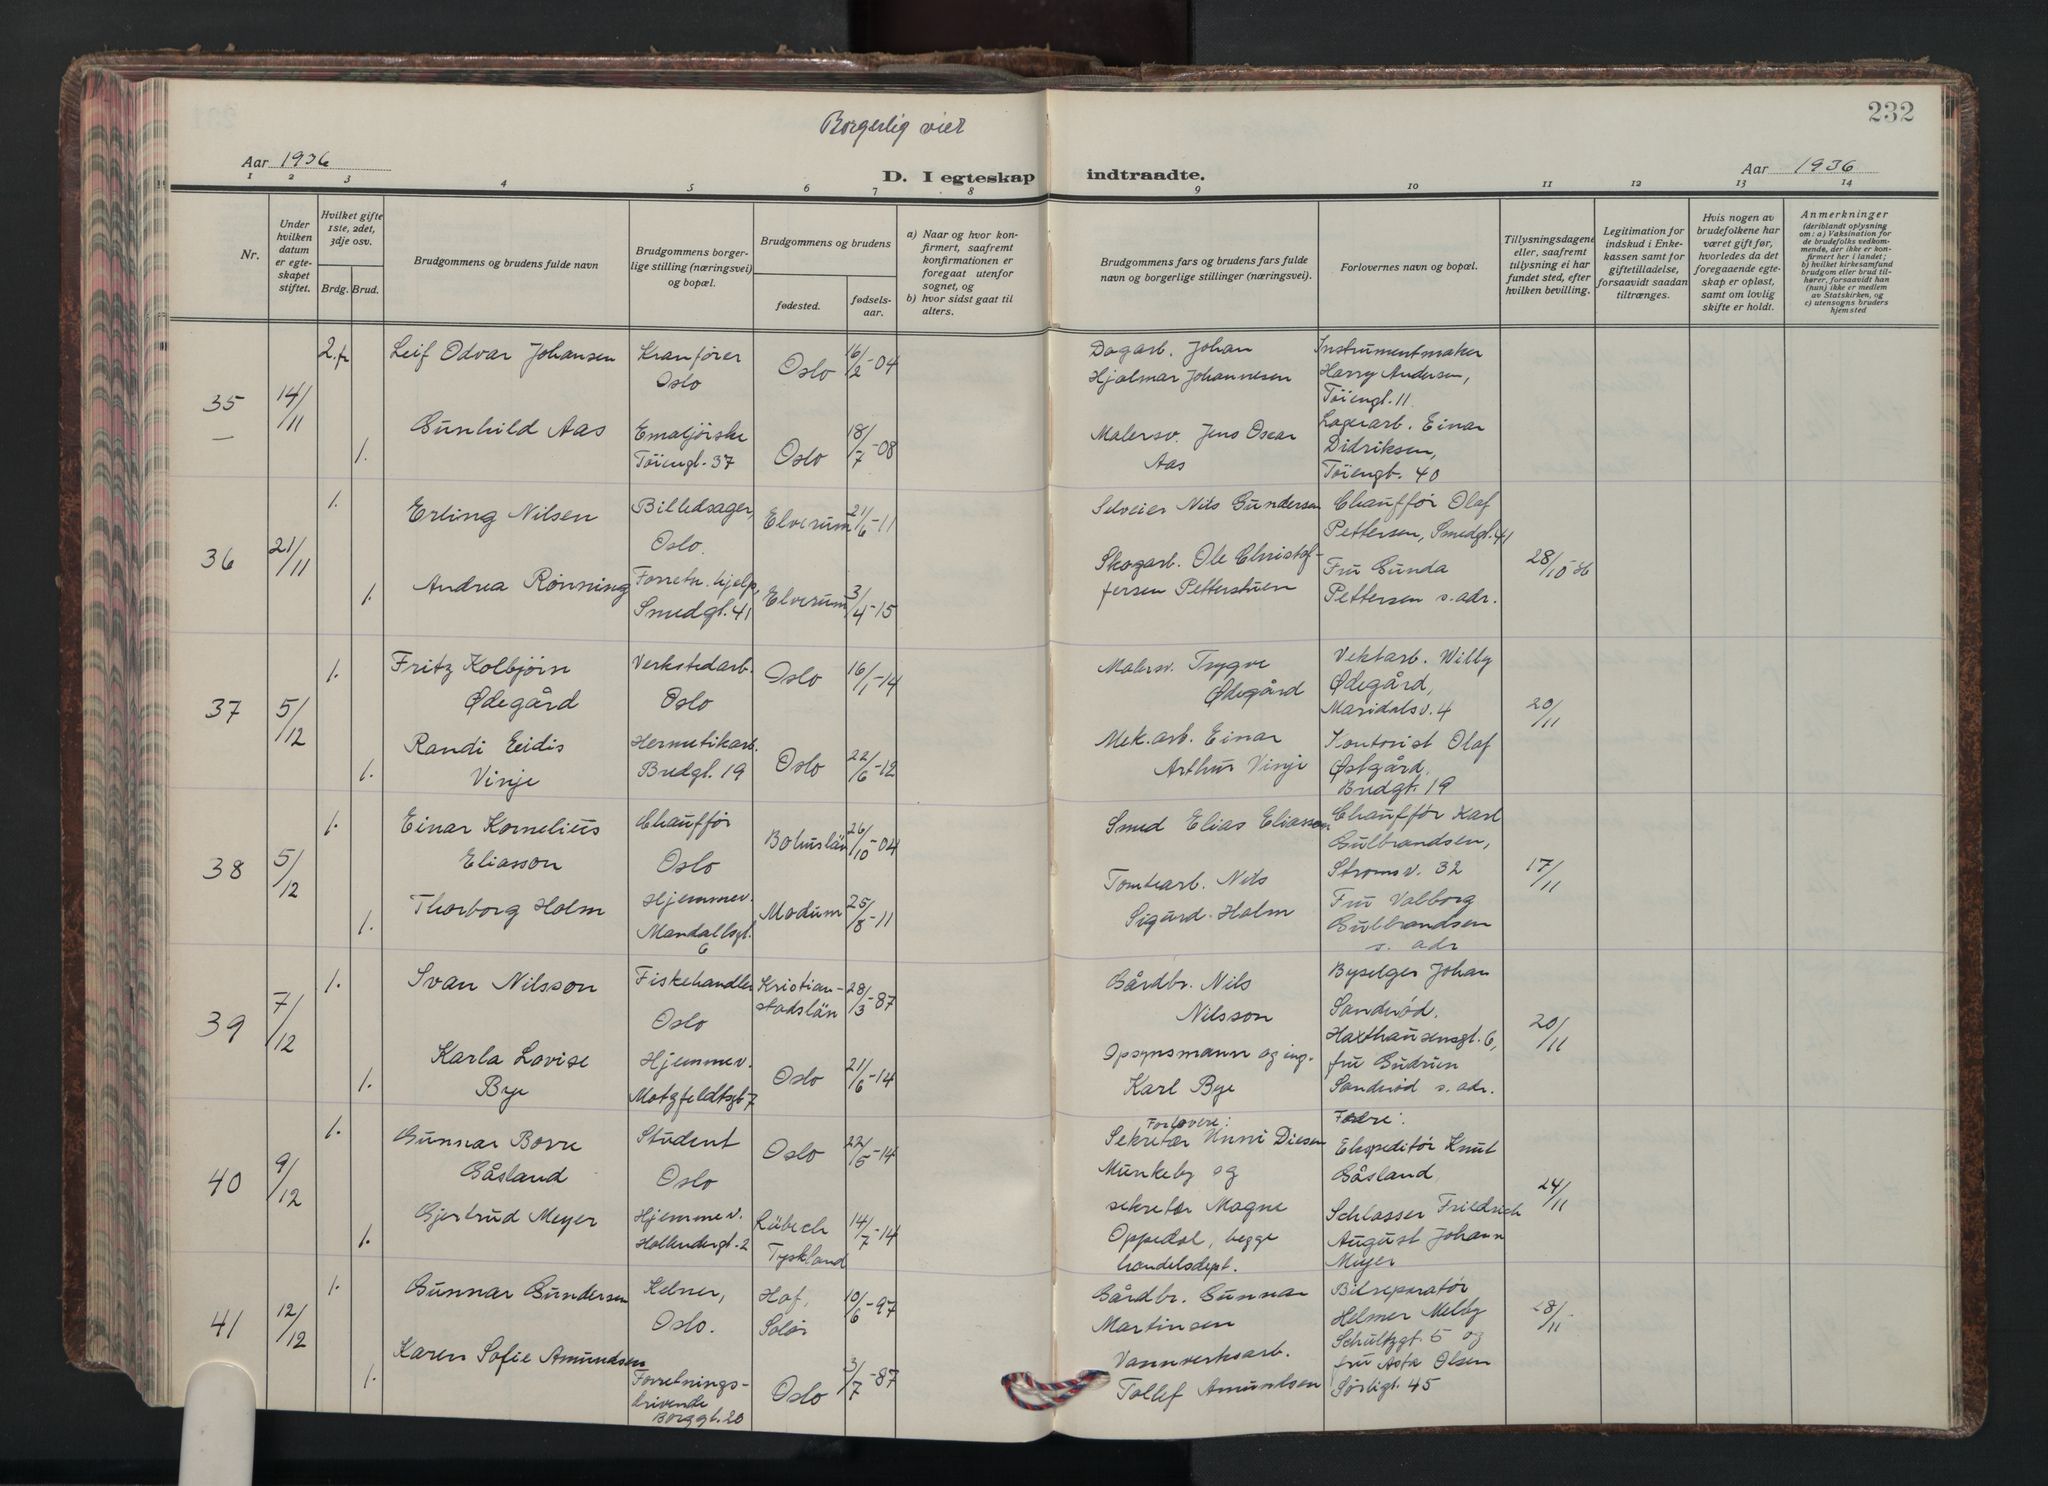 232
Borgerlig viet
Aar 1936
D. I egteskap indtraadte.
Aar 1936
1 2 3 4 5 6 7 8 9 10 11 12 13 14
Nr.
Under hvilken datum er egteskapet stiftet.
Hvilket gifte 1ste, 2det, 3dje osv.
Brdg. Brud.
Brudgommens og brudens fulde navn
Brudgommens borgerlige stilling (næringsvei) og bopæl.
Brudgommens og brudens
fødested.
fødselsaar.
a) Naar og hvor konfirmert, saafremt konfirmationen er foregaat utenfor sognet, og
b) hvor sidst gaat til alters.
Brudgommens fars og brudens fars fulde navn og borgerlige stillinger (næringsvei).
Forlovernes navn og bopæl.
Tillysningsdagene eller, saafremt tillysning ei har fundet sted, efter hvilken bevilling.
Legitimation for indskud i Enkekassen samt for giftetilladelse, forsaavidt saadan tiltrænges.
Hvis nogen av brudefolkene har været gift før, hvorledes da det foregaaende egteskap er opløst, samt om lovlig skifte er holdt.
Anmerkninger
(deriblandt oplysning om: a) Vaksination for de brudefolks vedkommende, der ikke er konfirmert her i landet; b) hvilket kirkesamfund brudgom eller brud tilhører, forsaavidt han (hun) ikke er medlem av Statskirken, og c) utensogns bruders hjemsted
35
14/11
2. fr
Leif Odvar Johansen
Kranfører
Oslo
Oslo
16/2-04
Dagarb. Johan
Hjalmar Johannesen
Instrumentmaker
Harry Andersen,
Töiengt. 11.
1.
Gunhild Aas
Emaljørske
Töiengt. 37
Oslo
18/7-08
Malersv. Jens Oscar
Aas
Lagerarb. Einar
Didriksen,
Töiengt. 40
36
21/11
1.
Erling Nilsen
Billedsager,
Oslo.
Elverum
21/6-11
Selveier Nils Gundersen
Chauffør Olaf
Pettersen, Smedgt. 41
28/10-36
1.
Andrea Rønning
Forretn. hjelp,
Smedgt. 41
Elverum
3/4-15
Skogarb. Ole Christof-
fersen Petterstuen
Fru Gunda
Pettersen s. adr.
37
5/12
1.
Fritz Kolbjörn
Ødegård
Verkstedarb.
Oslo
Oslo
16/1-14
Malersv. Trygve
Ødegård
Vektarb. Willy
Ødegård,
Maridalsv. 4
20/11
1.
Randi Eidis
Vinje
Hermetikarb.
Bredgt. 19
Oslo
22/6-12
Mek. arb. Einar
Arthur Vinje
Kontorist Olaf
Østgård,
Bredgt. 19
38
5/12
1.
Einar Kornelius
Eliasson
Chauffør
Oslo
Bohuslän
26/10-04
Smed Elias Eliasson
Chauffør Karl
Gulbrandsen,
Strømsv. 32
17/11
1.
Thorborg Holm
Hjemmev.
Mandallsgt.
6
Modum
25/8-11
Tomtearb. Nils
Sigurd Holm
Fru Valborg
Gulbrandsen
s. adr
39
7/12
1.
Svan Nilsson
Fiskehandler
Oslo
Kristian-
stadslän
28/3-87
Gårdbr. Nils
Nilsson
Byselger Johan
Sanderød.
Haxthausensgt. 6,
20/11
1.
Karla Lovise
Bye
Hjemmev.
Motzfeldtsgt 7
Oslo
21/6-14
Opsynsmann og ing.
Karl Bye
fru Gudrun
Sanderød s. adr.
40
9/12
1.
Gunnar Borre
Gåsland
Student
Oslo
Oslo
22/5-14
Forlovere:
Sekretær Unni Diesen
Munkeby og
sekretær Magne
Oppedal, begge
handelsdept.
Fedre:
Ekspeditör Knut
Gåsland,
24/11
1.
Gjertrud Meyer
Hjemmev.
Hollendergt. 2
Lübech
Tyskland
14/7-14
Schlosser Friedrich
August Johann
Meyer
41
12/12
1.
Gunnar Gundersen
Kelner,
Oslo.
Hof,
Solør
10/6-97
Gårdbr. Gunnar
Martinsen
Bilreparatör
Helmer Melby
Schultzgt. 5 og
28/11
1.
Karen Sofie Amundsen
Forretnings-
drivende
Borggt. 20
Oslo
3/7-87
Vannverksarb.
Tollef Amundsen
fru Asta Olsen
Sörligt. 45